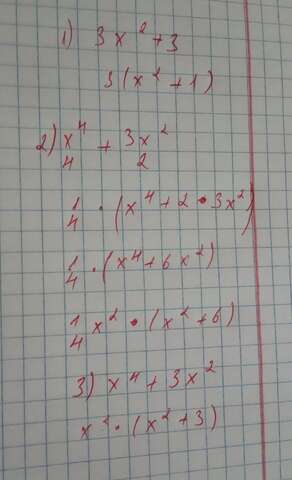 1) 3x² + 3
3(x² + 1)
2) x⁴/4 + 3x²/2
1/4 · (x⁴ + 2 · 3x²)
1/4 · (x⁴ + 6x²)
1/4 x² · (x² + 6)
3) x⁴ + 3x²
x² · (x² + 3)